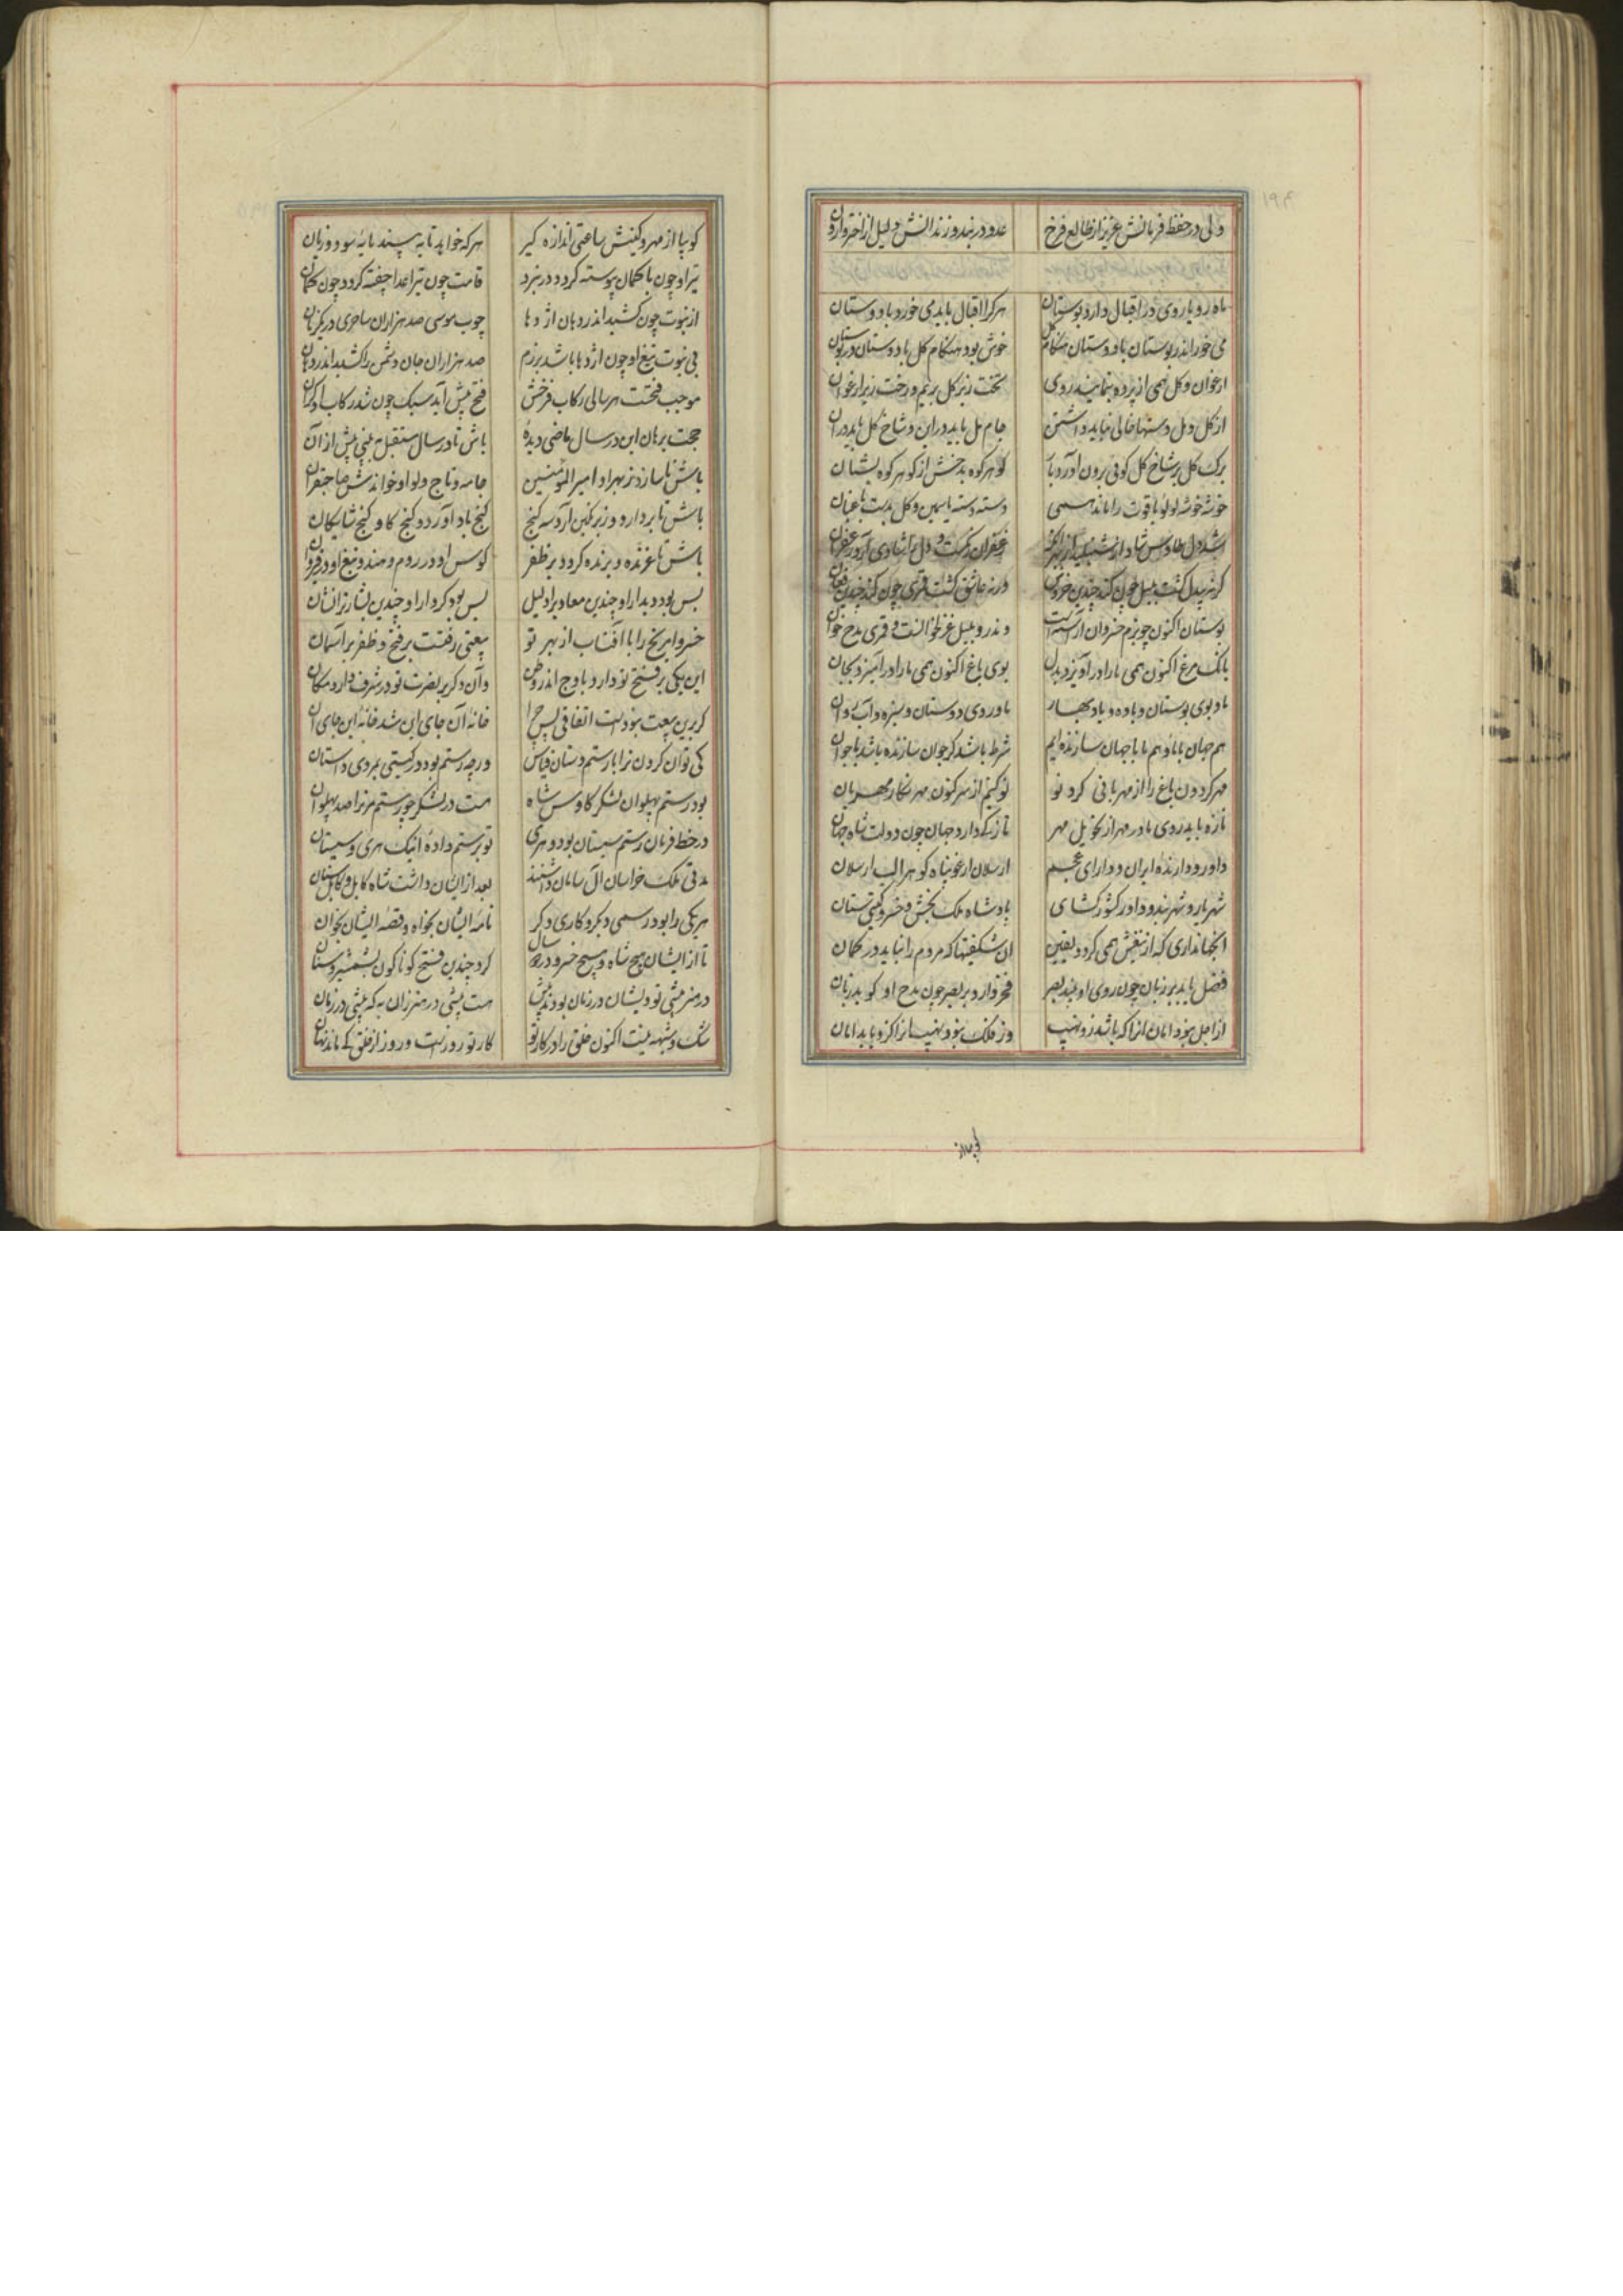 ولی در حفظ فرمانش عزیز از طالع فرخ عدو در بند و زندانش ذلیل از اختر وارون
ماه رو با روی در اقبال دارد بوستان هر کرا اقبال باید می خورد با دوستان
می خور اندر بوستان با دوستان هنگام گل خوش بود هنگام گل با دوستان در بوستان
ارغوان و گل همی از پرده بنمایند روی تخت زیر گل بریم و رخت زیر ارغوان
از گل و مل دستها خالی نباید داشتن جام مل باید در این و شاخ گل باید در آن
برک گل بر شاخ گل کوئی برون آورد باز کوهر کوه بدخش از کوهر کوه یشبان
خوشه خوشه لولو یاقوت را ماند همی دسته دسته یاسمین و گل بدست باغبان
شد دل طاوس شاد از شنبلید
گر نه بیدل گشت بلبل چون کند چندین خروش ور نه عاشق گشت قمری چون کند چندین فغان
بوستان اکنون چو بزم خسروان آراسته است و ندرو بلبل غزلخوانست و قمری مدح خوان
بانگ مرغ اکنون همی ما را درآویزد بدل بوی باغ اکنون همی ما را درآمیزد بجان
ما و بوی بوستان و باده و باد بهار ما و روی دوستان و سبزه و آب روان
هم جهان با ما و هم ما با جهان سازنده ایم شرط باشد کر جوان سازنده باشد با جوان
مهر گردون باغ را از مهربانی کرد نو نو کنیم از سر کنون مهر نگار مهربان
تازه باید روی ما در مهر از تحویل مهر تازکی دارد جهان چون دولت شاه جهان
داور و دارنده ایران و دارای عجم ارسلان ارغو پناه کوهر الب ارسلان
شهریار و شهر بند و داور کشور کشای پادشاه ملک بخش و خسرو کیتی ستان
آنجهانداری که از تیغش همی گردد یقین آن شگفتیها که مردم را نیاید در گمان
فضل یابد بر زبان چون روی او بیند بصر فخر آرد بر بصر چون مدح او گوید زبان
از اجل نبود امان آنرا که باشد زو نهیب وز فلک نبود نهیب آنرا کزو یابد امان
کوبیا
کو بیا از مهر و کینش ساعتی اندازه گیر هر که خواهد تا به بیند مایه سود و زیان
تیر او چون با کمان پیوسته گردد در نبرد قامت چون تیر اعدا چفته گردد چون کمان
از نبوت چون کشید اندر دهان اژدها چوب موسی صد هزاران ساحری در یکزمان
بی نبوت تیغ او چون اژدها باشد برزم صد هزاران جان دشمن را کشید اندر دهان
موجب فتحست هر سالی رکاب فرخش فتح پیش آید سبک چون شد رکاب او گران
حجت برهان این در سال ماضی دیده باش تا در سال مستقبل به بینی بیش از آن
باش تا سازد ز بهر او امیر المومنین جامه و تاج و لوا و خواندش صاحبقران
باش تا بردارد و زیر نگین آرد سه گنج گنج باد آورد و گنج گاو و گنج شایگان
باش تا غرنده و برنده گردد بر ظفر کوس او در روم و هند و تیغ او در قیروان
بس بود دیدار او چندین معاد برا دلیل بس بود کردار او چندین بشارترا نشان
خسروا مریخ را با آفتاب از بهر تو بیعتی رفتست بر فتح و ظفر بر آسمان
این یکی بر فتح تو دارد باوج اندر وطن وآن دگر بر نصرت تو در شرف دارد مکان
گر برین بیعت نبودست اتفاقی پس چرا خانه آن جای این شد خانه این جای آن
کی توان کردن ترا با رستم دستان قیاس ورچه رستم بود در گیتی بمردی داستان
بود رستم پهلوان لشکر کاوس شاه هست در لشکر چو رستم مر ترا صد پهلوان
در خط فرمان رستم سیستان بود و هری تو برستم داده اینک هری و سیستان
مدتی ملک خراسان آل سامان داشتند بعد از ایشان داشت شاه کابل و کابلستان
هر یکی را بود رسمی دیگر و کاری دگر نامه ایشان بخواه و قصه ایشان بخوان
تا از ایشان هیچ شاه و هیچ خسرو در دو سال کرد چندین فتح گوناگون بشمشیر و سنان
در هنر بیشی تو و ایشان در زمان بودند پیش هست بیشی در هنر زان به که پیشی در زمان
شک و شبهه نیست اکنون خلق را در کار تو کار تو روزست و روز از خلق کی ماند نهان